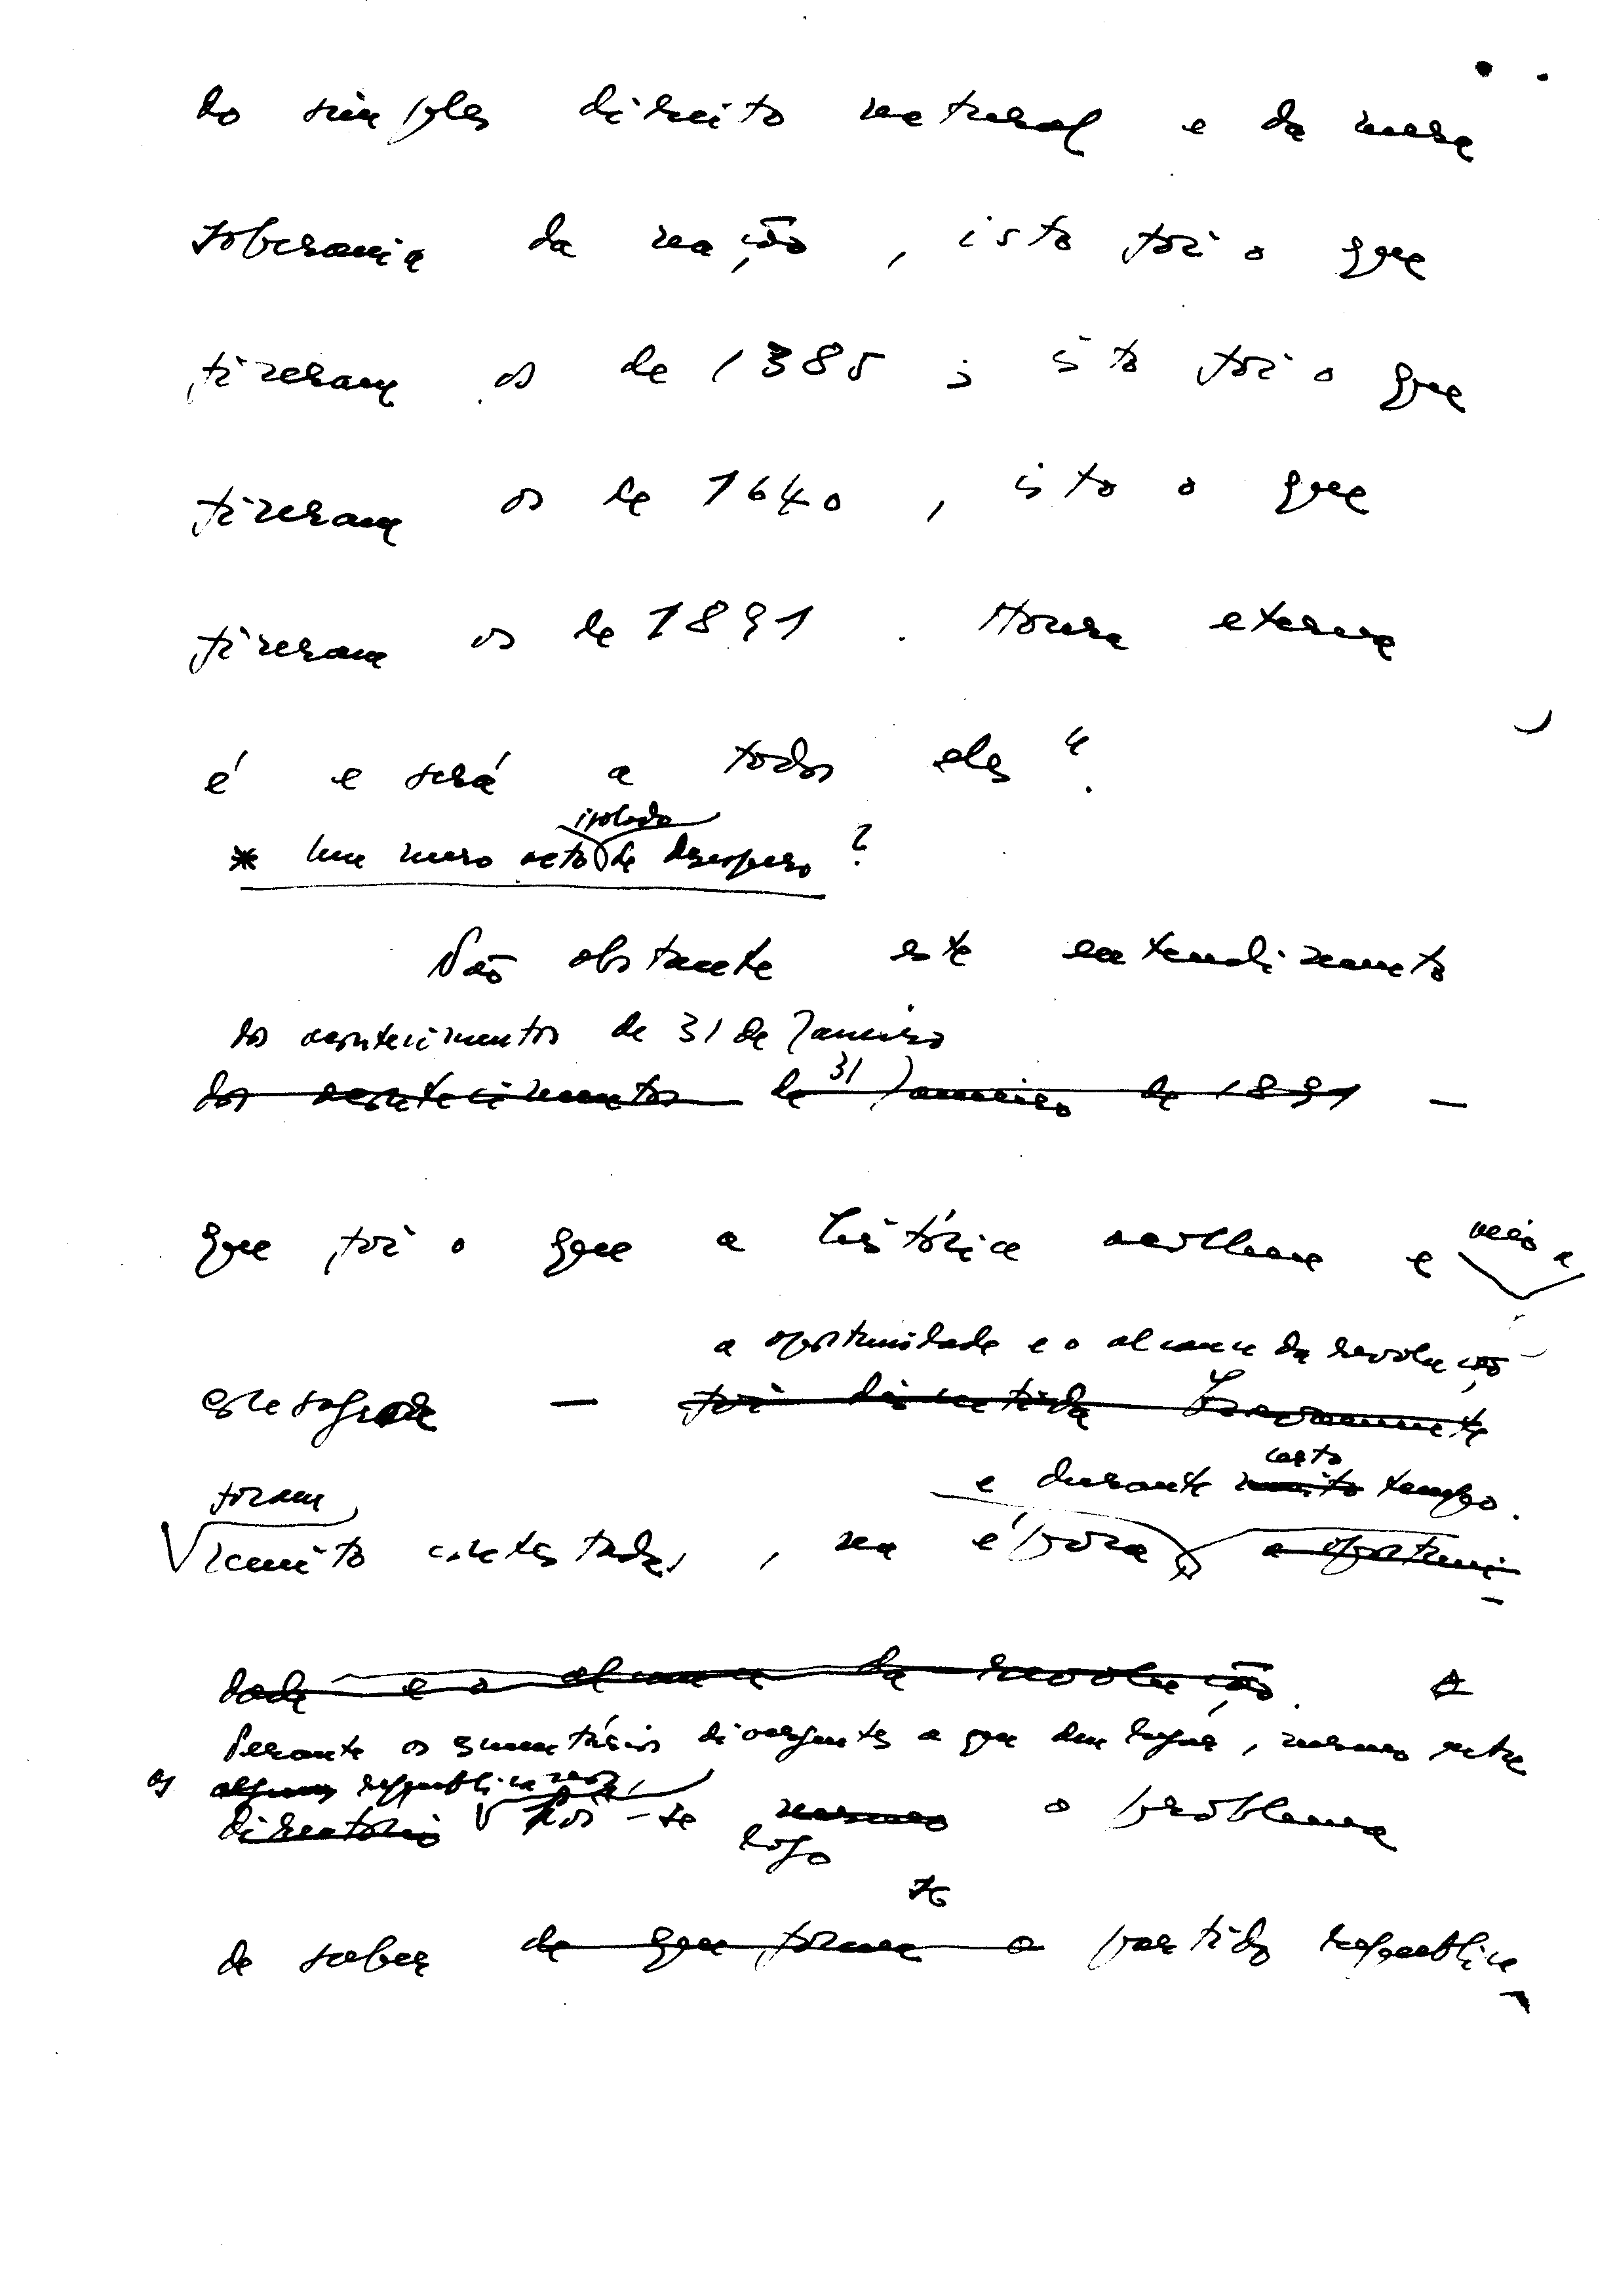 do simples direito natural e da mera
soberania da nação, isto foi o que
fizeram os de 1385; isto foi o que
fizeram os de 1640, isto o que
fizeram os de 1891. Honra eterna
é e será a todos eles".
isolado
* Um mero acto de desespero?
Não obstante este entendimento
dos acontecimentos de 31 de Janeiro
dos acontecimentos de 31 Janeiro de 1891 —
que foi o que a história acolheu e veio a
a oportunidade e o alcance da revolução
consagrar — foi discutida
foram e durante certo muito tempo.
muito contestados, na época a oportuni-
dade e o alcance da revolução. A
Perante os comentários divergentes a que deu lugar, mesmo entre
os alguns republicanos,
directório pôs-se mesmo o problema
logo
se
de saber de que forma o partido republica-